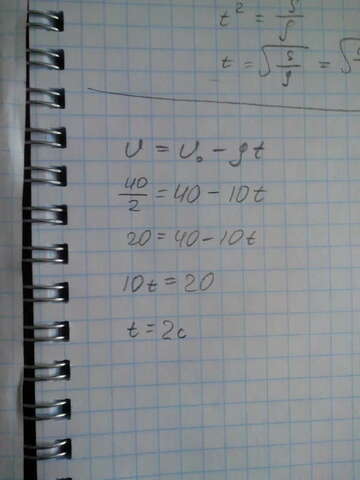 t² = s/g
t = √(s/g) = √
v = v₀ - gt
40/2 = 40 - 10t
20 = 40 - 10t
10t = 20
t = 2c